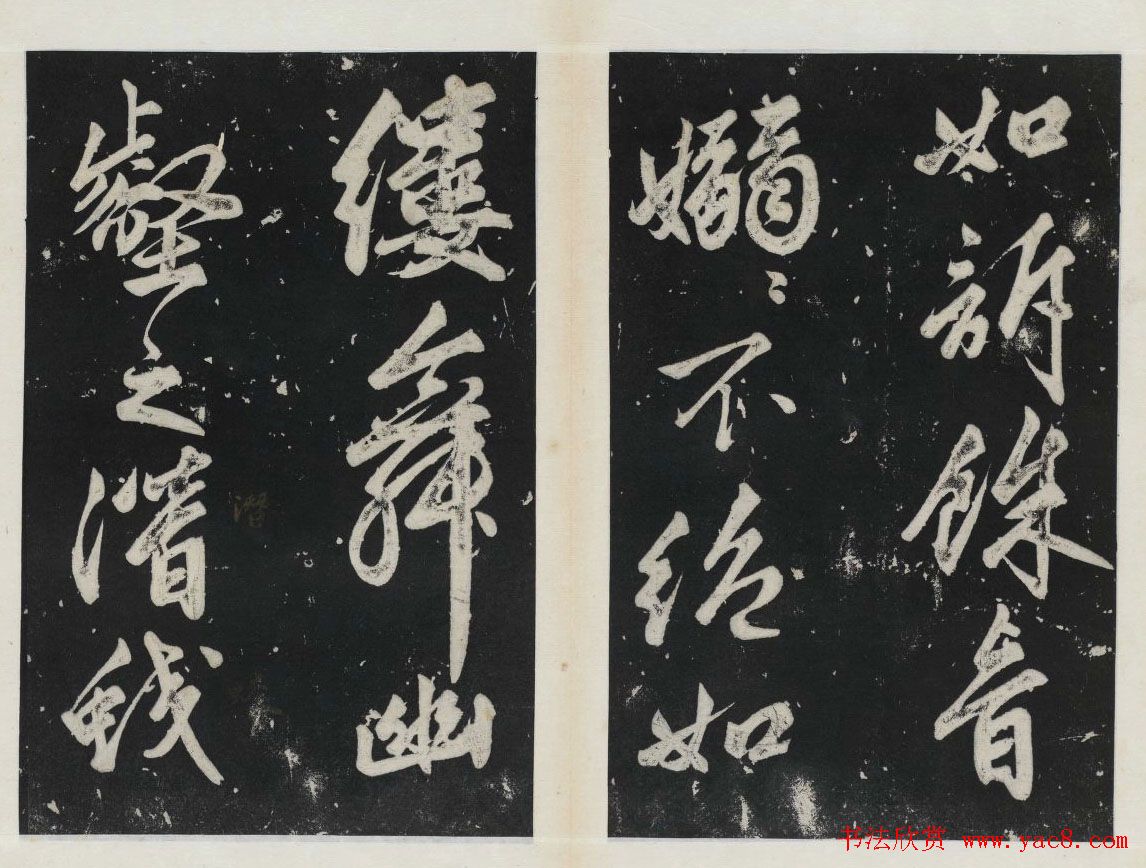 如訴餘音
嫋〻不絕如
縷舞幽
壑之潛蛟
潛
书法欣赏 www.yac8.com